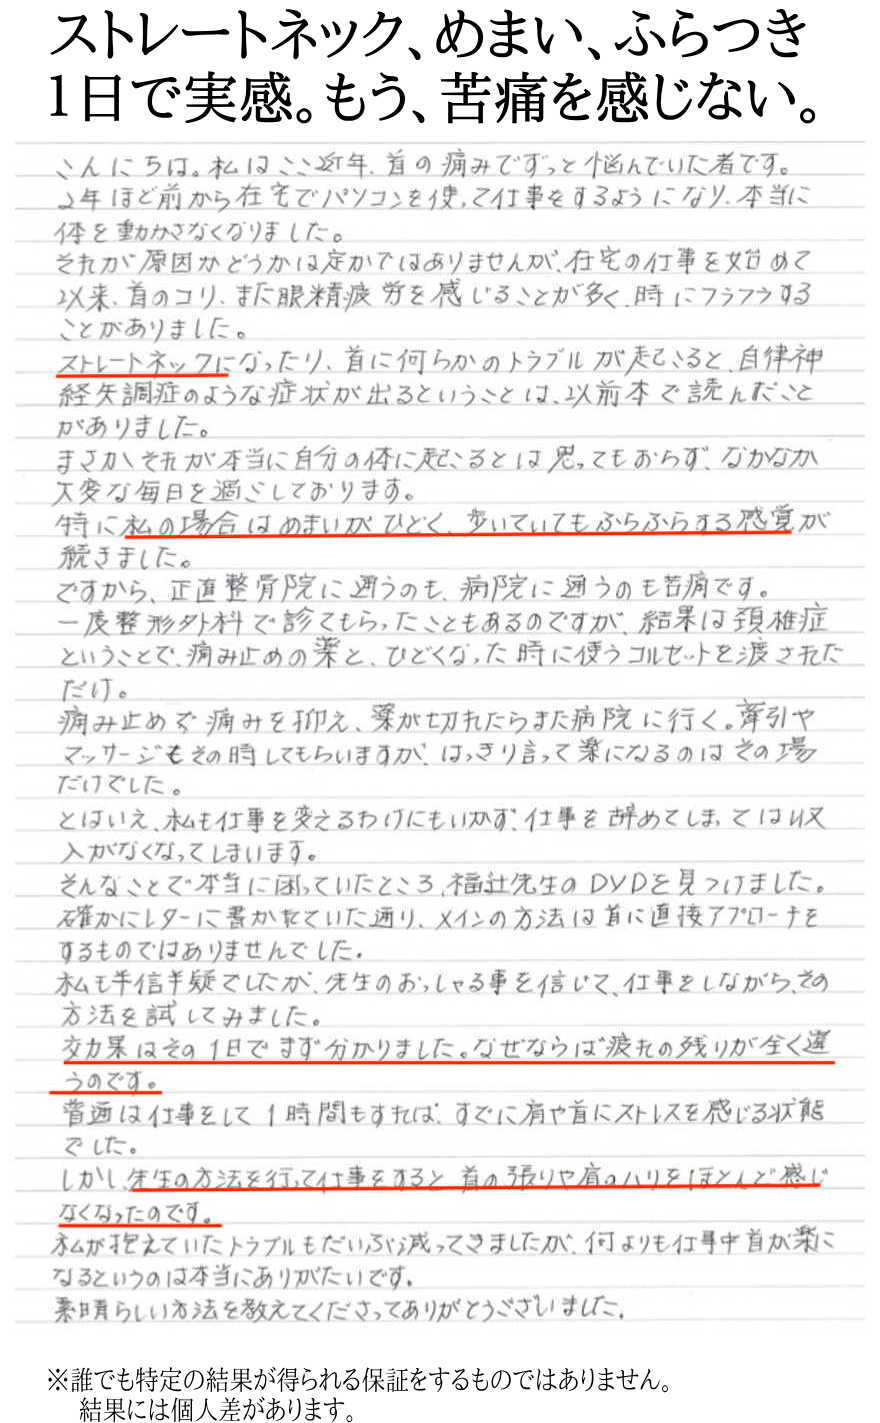 ストレートネック、めまい、ふらつき
1日で実感。もう、苦痛を感じない。
こんにちは。私はここ近年、首の痛みでずっと悩んでいた者です。
2年ほど前から在宅でパソコンを使って仕事をするようになり、本当に
体を動かさなくなりました。
それが原因かどうかは定かではありませんが、在宅の仕事を始めて
以来、首のコリ、また眼精疲労を感じることが多く、時にフラフラする
ことがありました。
ストレートネックになったり、首に何らかのトラブルが起こると、自律神
経失調症のような症状が出るということは、以前本で読んだこと
がありました。
まさかそれが本当に自分の体に起こるとは思ってもおらず、なかなか
大変な毎日を過ごしております。
特に私の場合はめまいがひどく、歩いていてもふらふらする感覚が
続きました。
ですから、正直整骨院に通うのも、病院に通うのも苦痛です。
一度整形外科で診てもらったこともあるのですが、結果は頚椎症
ということで、痛み止めの薬と、ひどくなった時に使うコルセットを渡された
だけ。
痛み止めで痛みを抑え、薬が切れたらまた病院に行く。牽引や
マッサージもその時してもらいますが、はっきり言って楽になるのはその場
だけでした。
とはいえ、私も仕事を変えるわけにもいかず、仕事を辞めてしまっては収
入がなくなってしまいます。
そんなことで本当に困っていたところ、福辻先生のDVDを見つけました。
確かにレターに書かれていた通り、メインの方法は首に直接アプローチを
するものではありませんでした。
私も半信半疑でしたが、先生のおっしゃる事を信じて、仕事をしながら、その
方法を試してみました。
効果はその1日でまず分かりました。なぜならば疲れの残りが全く違
うのです。
普通は仕事をして1時間もすれば、すでに肩や首にストレスを感じる状態
でした。
しかし、先生の方法を行って仕事をすると、首の張りや肩のハリをほとんど感じ
なくなったのです。
私が抱えていたトラブルもだいぶ減ってきましたが、何よりも仕事中首が楽に
なるというのは本当にありがたいです。
素晴らしい方法を教えてくださってありがとうございました。
※誰でも特定の結果が得られる保証をするものではありません。
結果には個人差があります。